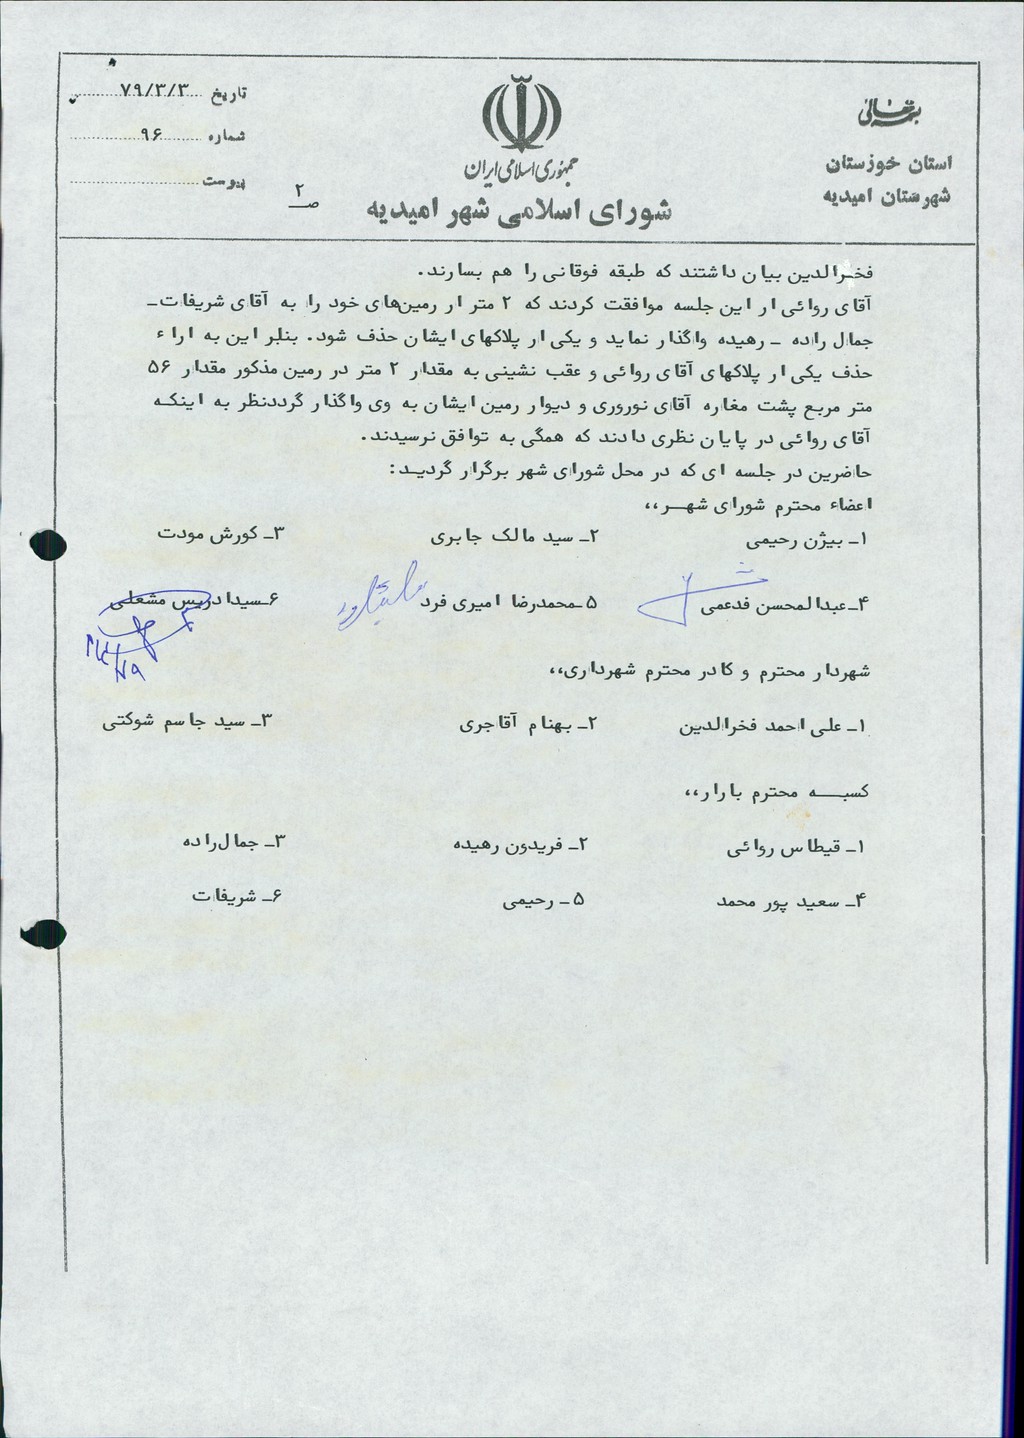 بسمه تعالی
استان خوزستان
شهرستان امیدیه
جمهوری اسلامی ایران
شورای اسلامی شهر امیدیه
تاریخ ۷۹/۳/۳
شماره ۹۶
پیوست
صـ ۲
فخرالدین بیان داشتند که طبقه فوقانی را هم بسارند.
آقای روائی ار این جلسه موافقت کردند که ۲ متر ار رمین‌های خود را به آقای شریفات ـ
جمال راده ـ رهیده واگذار نماید و یکی ار پلاکهای ایشان حذف شود. بنابر این به اراء
حذف یکی ار پلاکهای آقای روائی و عقب نشینی به مقدار ۲ متر در رمین مذکور مقدار ۵۶
متر مربع پشت مغاره آقای نوروری و دیوار رمین ایشان به وی واگذار گرددنظر به اینکه
آقای روائی در پایان نظری دادند که همگی به توافق نرسیدند.
حاضرین در جلسه ای که در محل شورای شهر برگرار گردید:
اعضاء محترم شورای شهر،،
۱ـ بیژن رحیمی ۲ـ سید مالک جابری ۳ـ کورش مودت
۴ـ عبدالمحسن فدعمی ۵ـ محمدرضا امیری فرد ۶ـ سیدادریس مشعلی
شهردار محترم و کادر محترم شهرداری،،
۱ـ علی احمد فخرالدین ۲ـ بهنام آقاجری ۳ـ سید جاسم شوکتی
کسبه محترم بارار،،
۱ـ قیطاس روائی ۲ـ فریدون رهیده ۳ـ جمال‌راده
۴ـ سعید پور محمد ۵ـ رحیمی ۶ـ شریفات